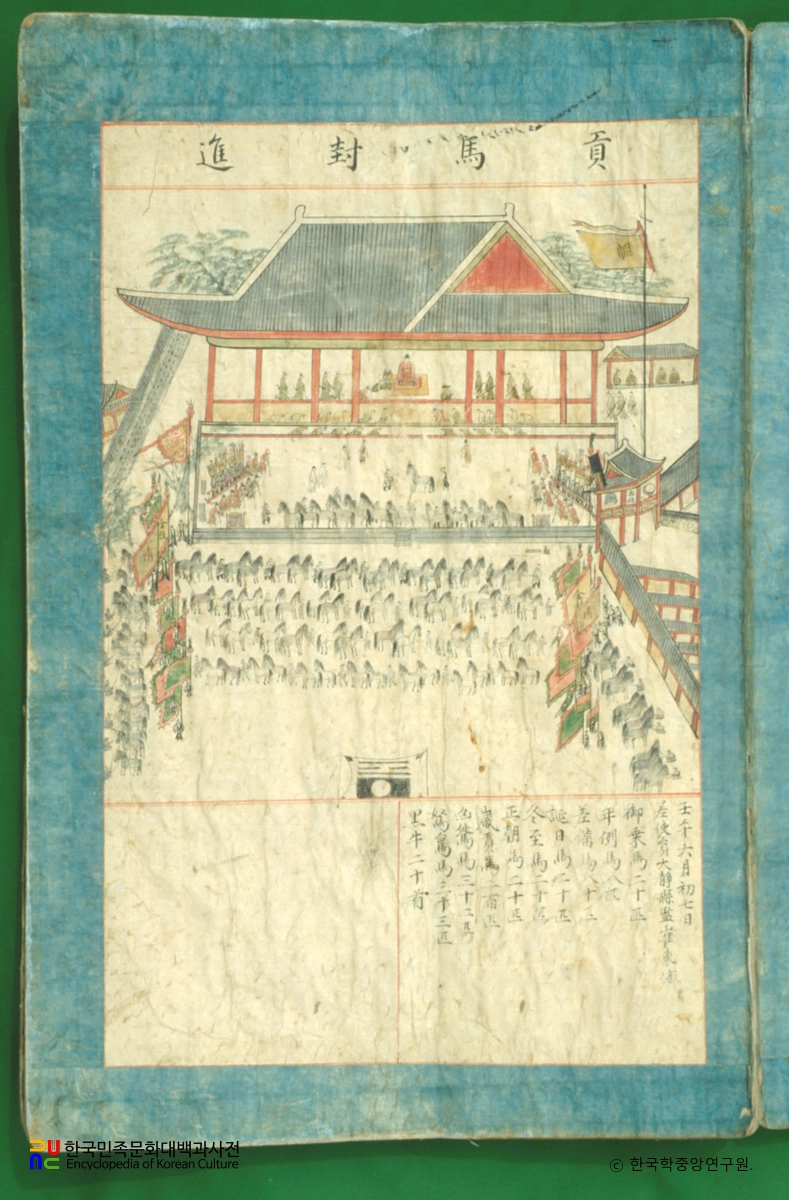 貢馬封進
壬午六月初七日
差使員大靜縣監崔東濟
御乘馬二十匹
年例馬八匹
差備馬八十匹
誕日馬二十匹
冬至馬二十匹
正朝馬二十匹
歲貢馬二百匹
凶咎馬三十二匹
駑駘馬三十三匹
黑牛二十首
한국민족문화대백과사전
Encyclopedia of Korean Culture
© 한국학중앙연구원.